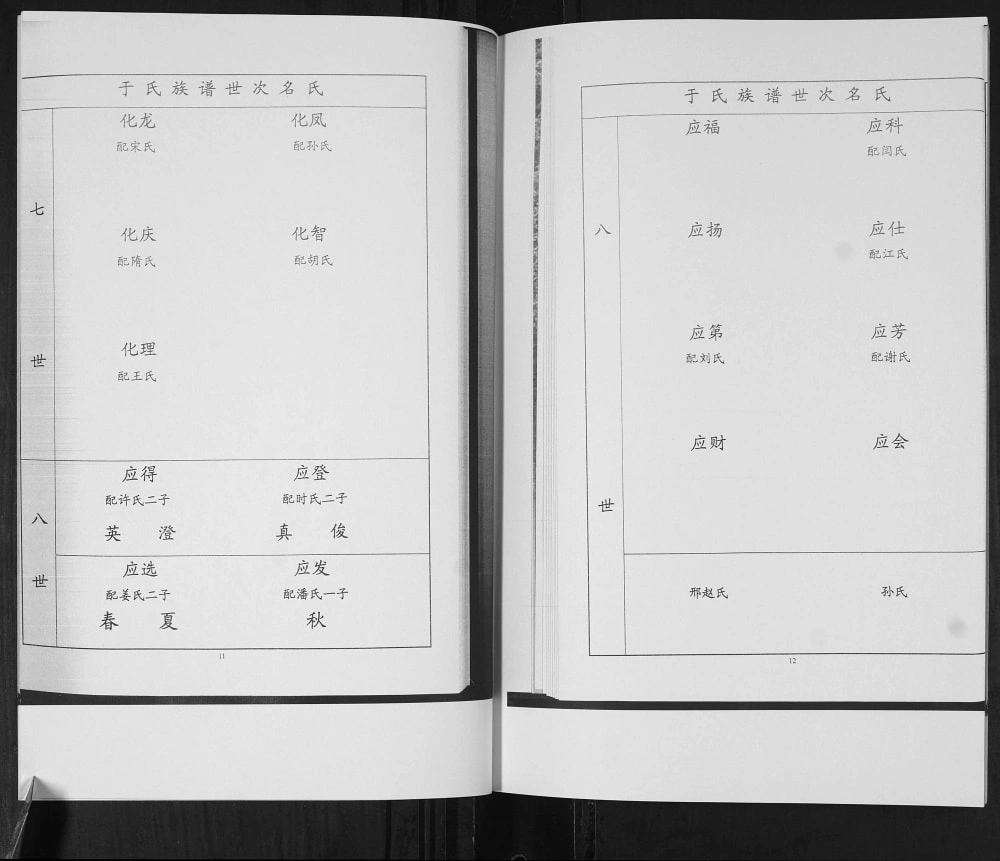 于氏族谱世次名氏
七世
化龙 化凤
配宋氏 配孙氏
化庆 化智
配隋氏 配胡氏
化理
配王氏
八世
应得 应登
配许氏二子 配时氏二子
英 澄 真 俊
应选 应发
配姜氏二子 配潘氏一子
春 夏 秋
11
于氏族谱世次名氏
八世
应福 应科
配闫氏
应扬 应仕
配江氏
应第 应芳
配刘氏 配谢氏
应财 应会
邢赵氏 孙氏
12